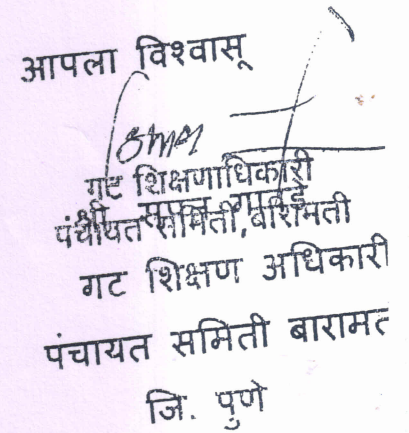 आपला विश्वासू
गट शिक्षणाधिकारी
श्री
पंचायत समिती, बारामती
गट शिक्षण अधिकारी
पंचायत समिती बारामत
जि. पुणे